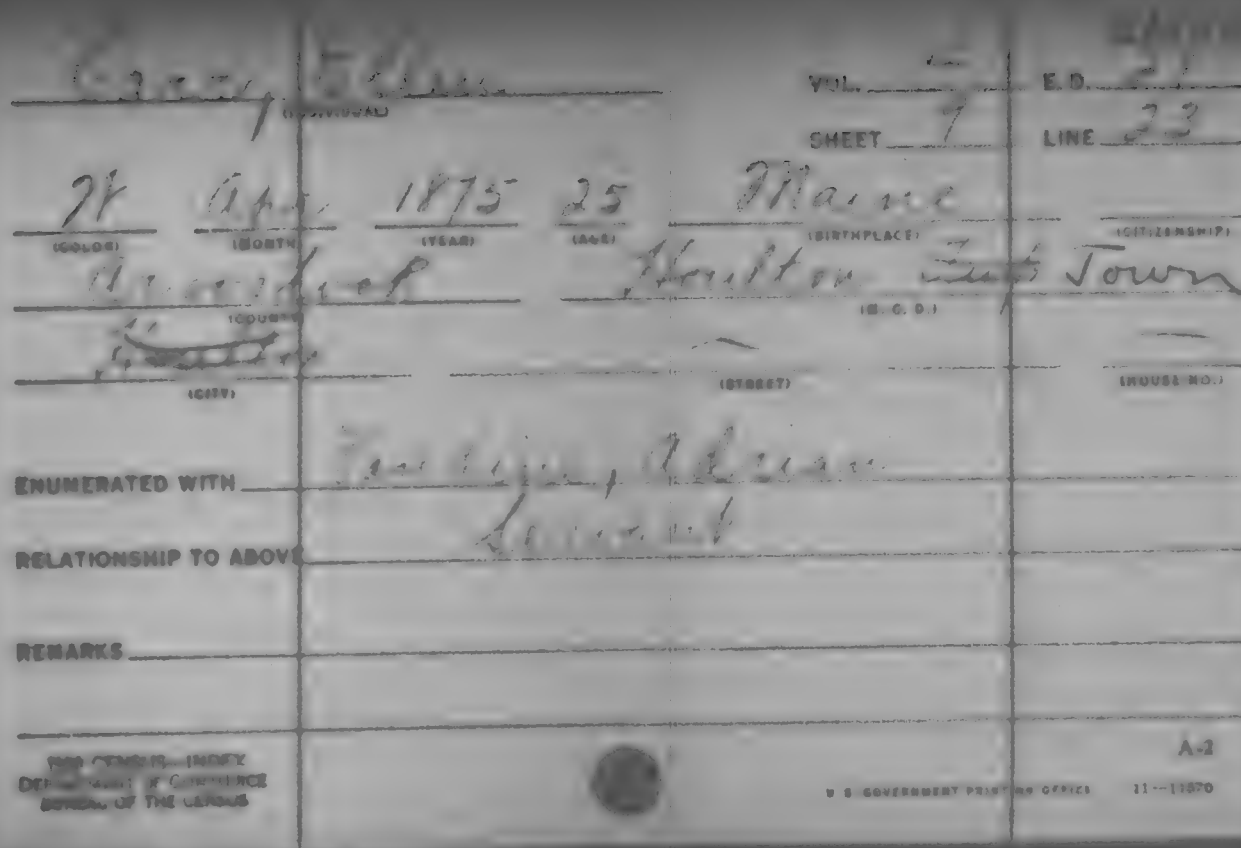 VOL. E.D. 21
(INDIVIDUAL)
SHEET 9 LINE 23
W Apr. 1875 25 Maine
(COLOR) (MONTH) (YEAR) (AGE) (BIRTHPLACE) (CITIZENSHIP)
Aroostook Houlton Town
(COUNTY) (M. C. D.)
(CITY) (STREET) (HOUSE NO.)
ENUMERATED WITH
Servant
RELATIONSHIP TO ABOVE
REMARKS
1900 CENSUS—INDEX
DEPARTMENT OF COMMERCE
BUREAU OF THE CENSUS
A-2
U. S. GOVERNMENT PRINTING OFFICE 11—11870